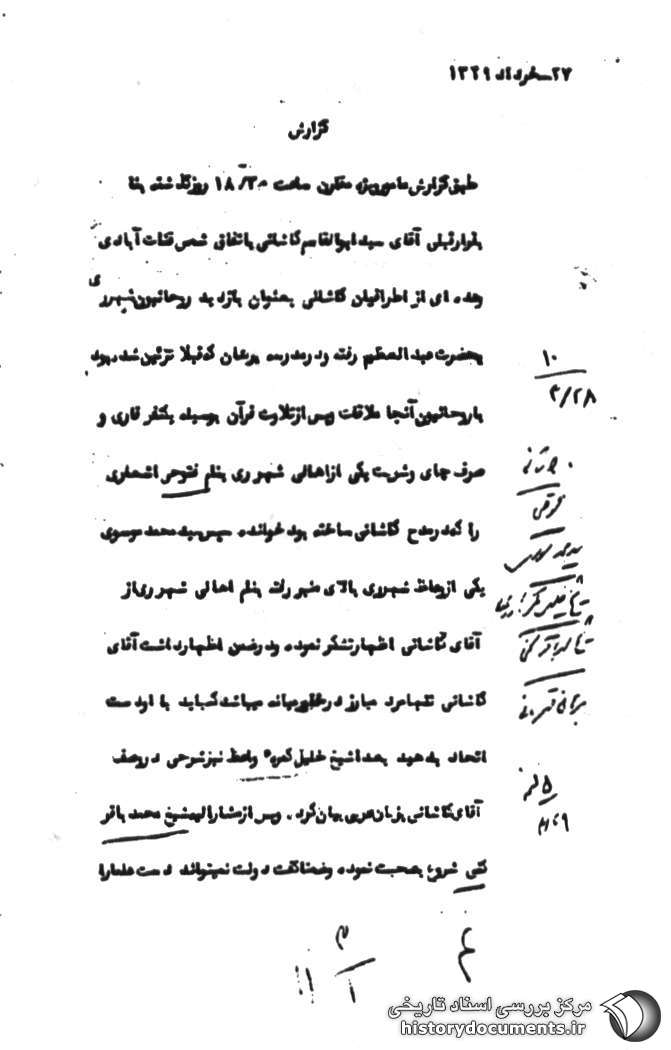 ۲۷ـخرداد ۱۳۲۹
گزارش
طبق گزارش مامور ویژه مقارن ساعت ۱۸/۳۰ روز گذشته بنا
بقرار قبلی آقای سید ابوالقاسم کاشانی باتفاق شمس قنات آبادی
وعده ای از اطرافیان کاشانی بعنوان بازدید روحانیون شهرری
بحضرت عبدالعظیم رفته ودرمدرسه برهان که قبلا تزئین شده بود
باروحانیون آنجا ملاقات وپس ازتلاوت قرآن بوسیله یکنفر قاری و
صرف چای وشربت یکی ازاهالی شهر ری بنام فتوحی اشعاری
را که در مدح کاشانی ساخته بود خوانده سپس سید محمد موسوی
یکی از وعاظ شهرری بالای منبر رفته بنام اهالی شهر ری از
آقای کاشانی اظهارتشکر نموده ودرضمن اظهارداشت آقای
کاشانی تنها مرد مبارز در خاورمیانه میباشد که باید با او دست
اتحاد بدهید بعد اشیخ خلیل واعظ نیز شرحی در وصف
آقای کاشانی بزبان عربی بیان کرد. وپس از مشارالیه شیخ محمد باقر
شروع بصحبت نموده وضمنا گفت دولت نمیتواند دست علما را
۱۰
۳/۲۸
۵
۲
۱
۱۱
۴
مرکز بررسی اسناد تاریخی
historydocuments.ir